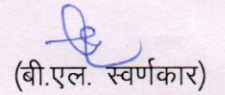 (बी.एल. स्वर्णकार)